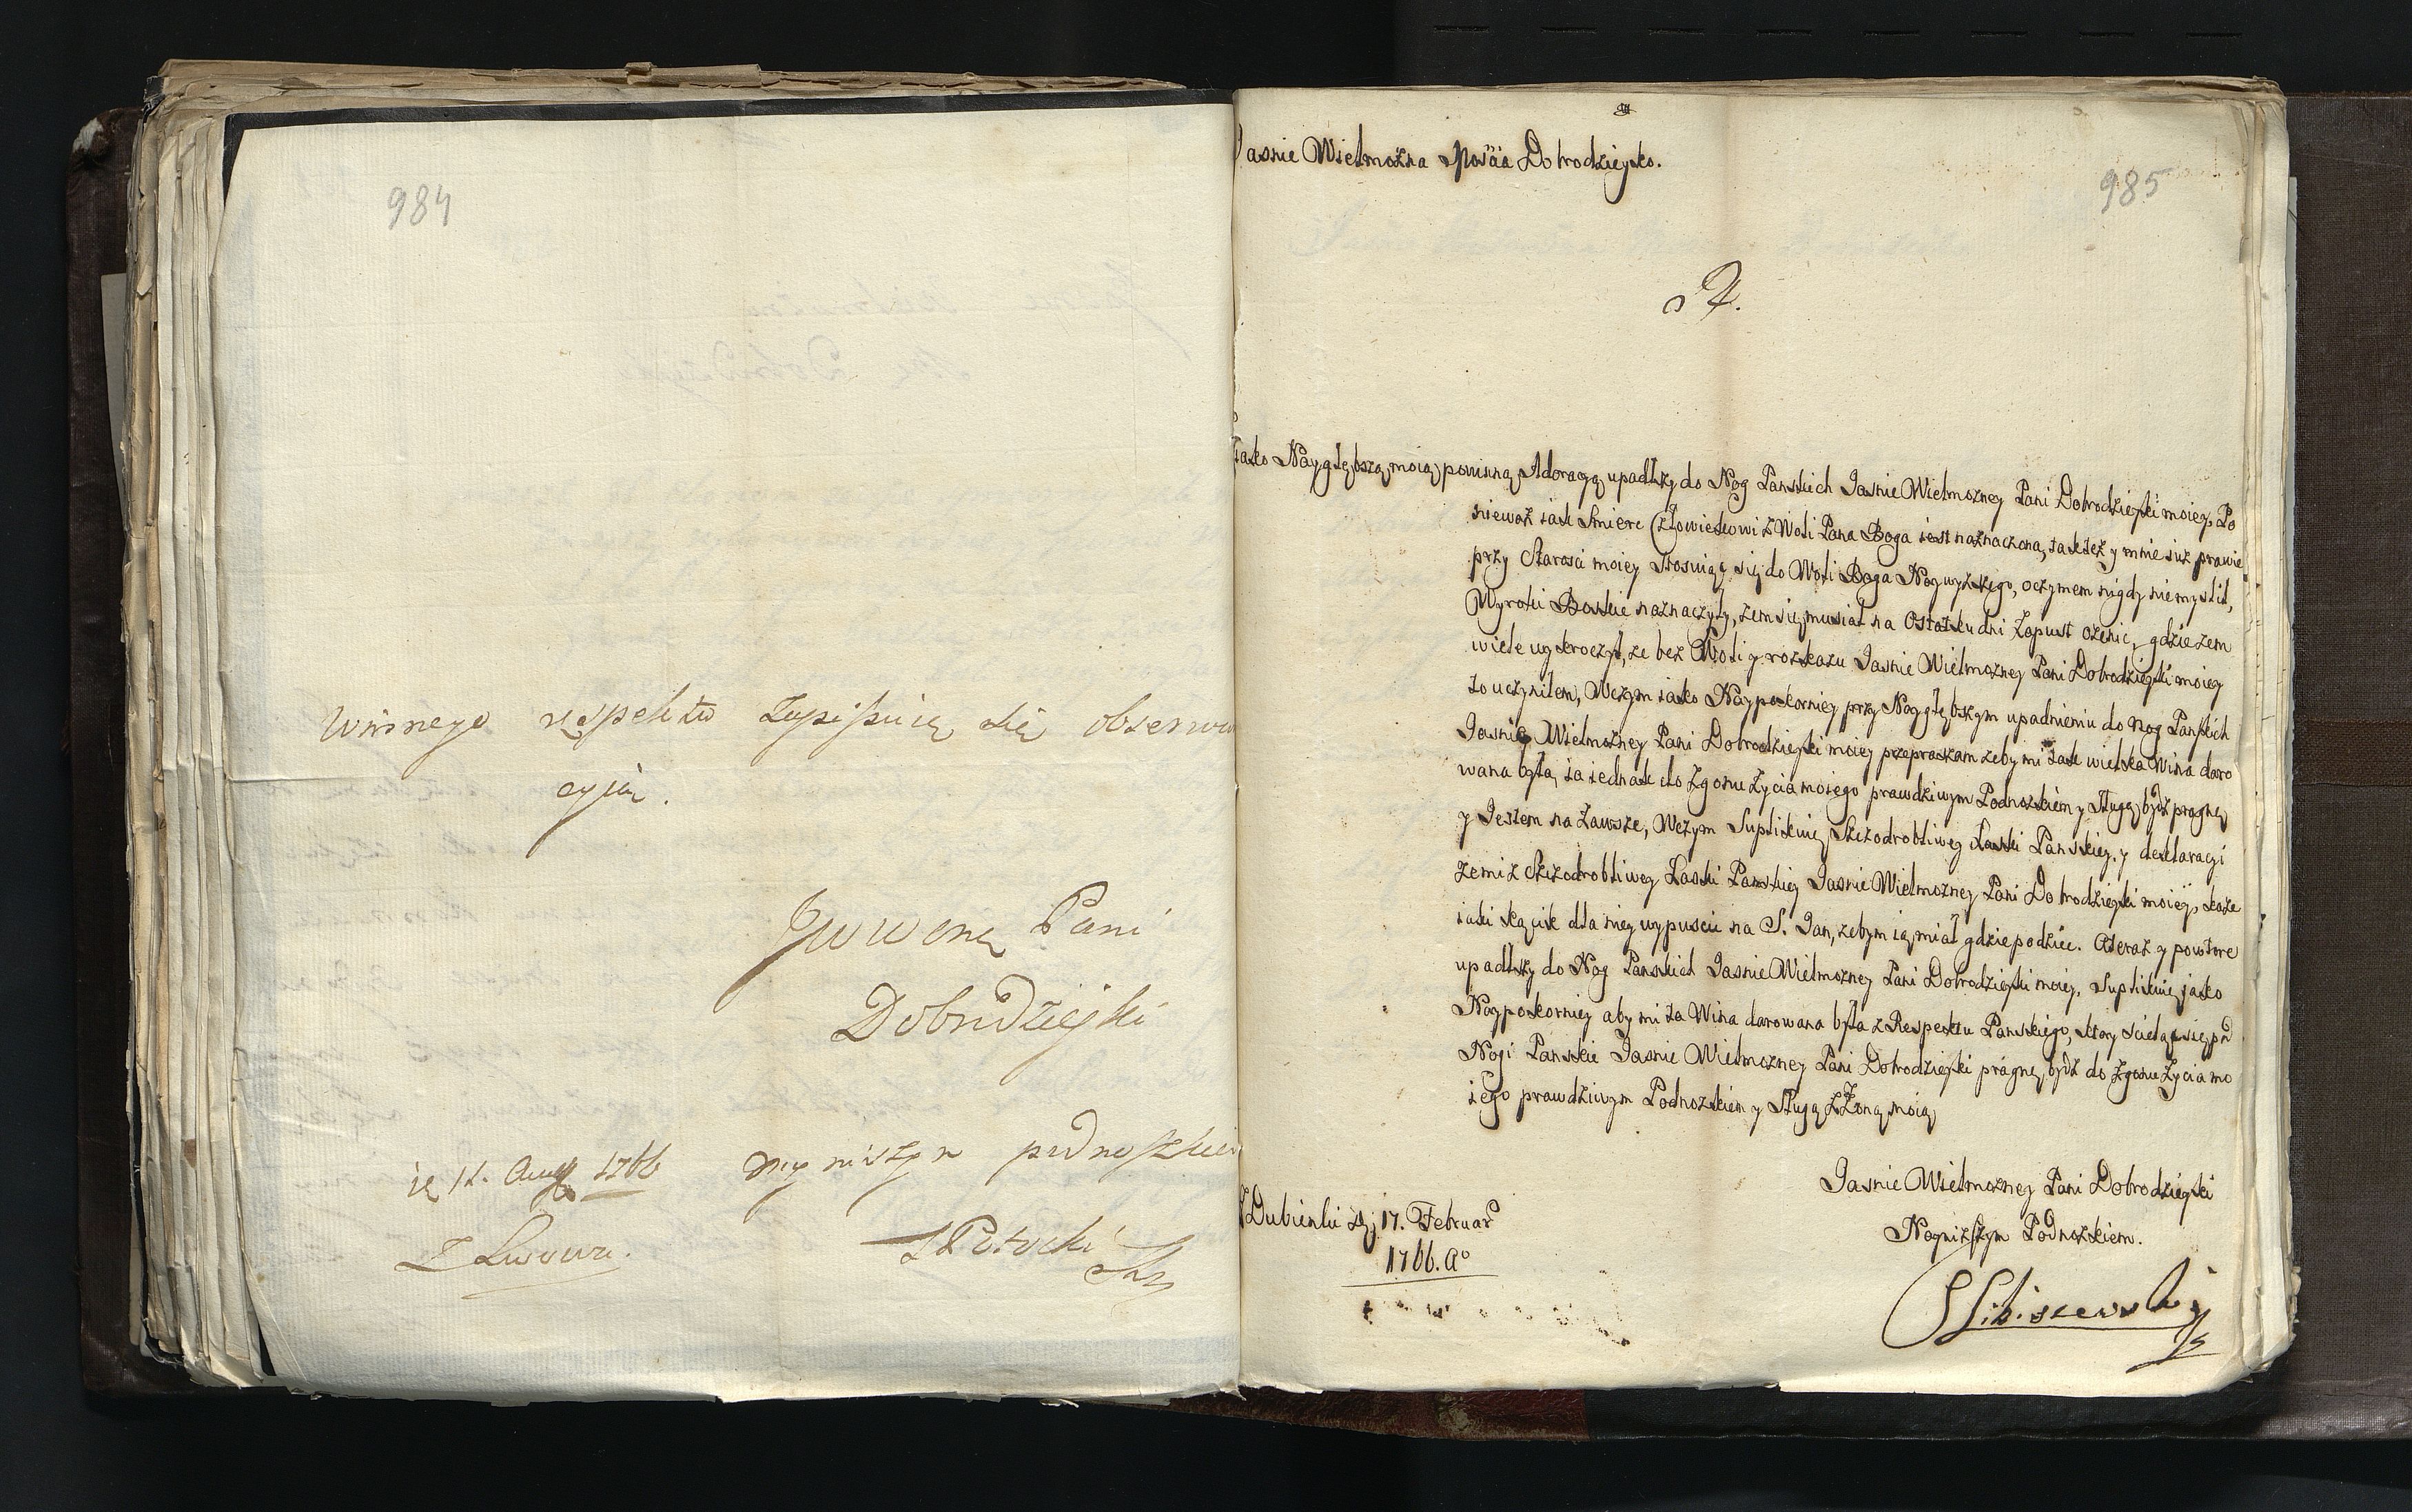 984
winnego respektu zapisuię się obserwa
cyią.
JWWoney Pani
Dobrodzieyki
12. Aug 1766
z Lwowa.
nayniższym podnoszkiem
Potocki
985
Jasnie Wielmożna Dobrodzieyko.
iako Naygłębszą moią powinną Adoracyą upadszy do Nog Panskich Jasnie Wielmozney Pani Dobrodzieyki moiey, Po
niewaz iak Smierc Człowiekowi z Woli Pana Boga iest naznaczona, tak tez y mnie iuz prawie
przy Starosci moiey stosuiąc się do Woli Boga Naywyzszego, oczymem nigdy niemyslił,
Wyroki Boskie naznaczyły, zem się musiał na Ostatku dni Zapust ozenic, gdzie zem
wiele wykroczył, ze bez Woli y rozkazu Jasnie Wielmozney Pani Dobrodzieyki moiey
to uczyniłem, Wczym iako Naypokorniey przy Naygłębszym upadnieniu do nog Panskich
Jasnie Wielmozney Pani Dobrodzieyki moiey przepraszam zeby mi tak wielka Wina daro
wana była, ia iednak do zgonu zycia moiego prawdziwym Podnozkiem y Sługą bydz pragnę
y Jestem na zawsze, Wczym Suplikuię Szczodrobliwey Łaski Panskiey, y deklaracyi
ze mi z Szczodrobliwey Łaski Panskiey Jasnie Wielmozney Pani Dobrodzieyki moiey, kaze
iaki kącik dla niey wypuscic na S. Jan, zebym ią miał gdzie podziec. A teraz y powtore
upadszy do Nog Panskich Jasnie Wielmozney Pani Dobrodzieyki moiey, Suplikuię jako
Naypokorniey aby mi ta Wina darowana była z Respektu Panskiego, ktory scieląc się pod
Nogi Panskie Jasnie Wielmozney Pani Dobrodzieyki pragnę bydz do zgonu zycia mo
iego prawdziwym Podnozkiem y Sługą z Zoną moią
Jasnie Wielmozney Pani Dobrodzieyki
Nayniższym Podnozkiem.
z Dubienki 17. Februar
1766. Ao